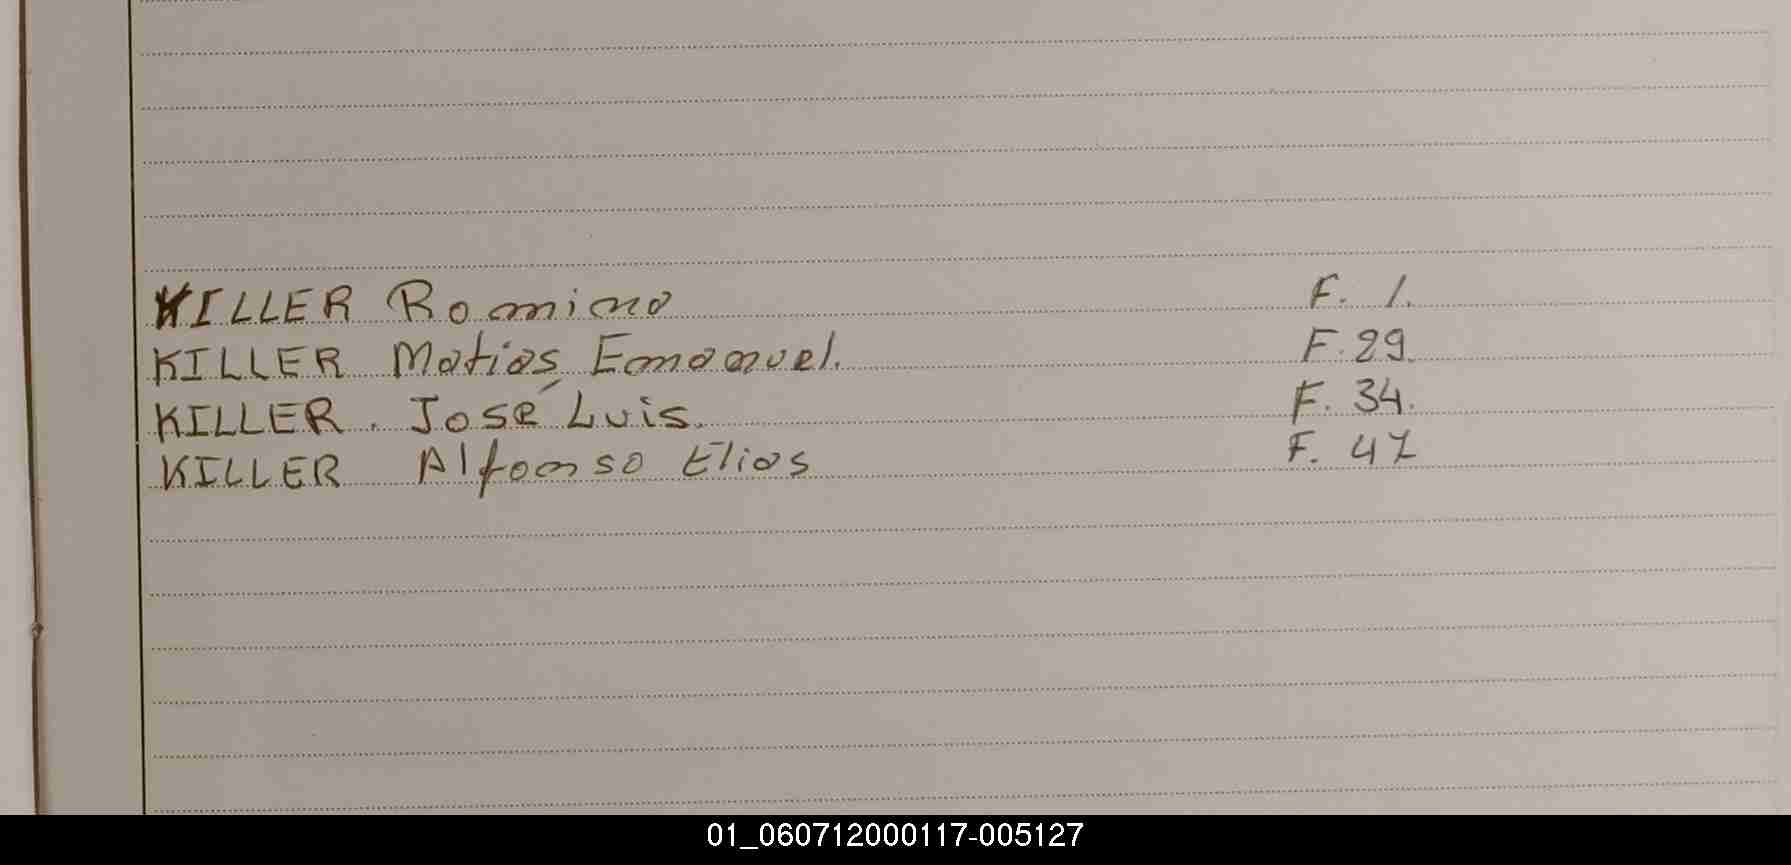 KILLER Romina F. 1.
KILLER Matias Emanuel. F. 29.
KILLER. José Luis. F. 34.
KILLER Alfonso Elias F. 47
01_060712000117-005127